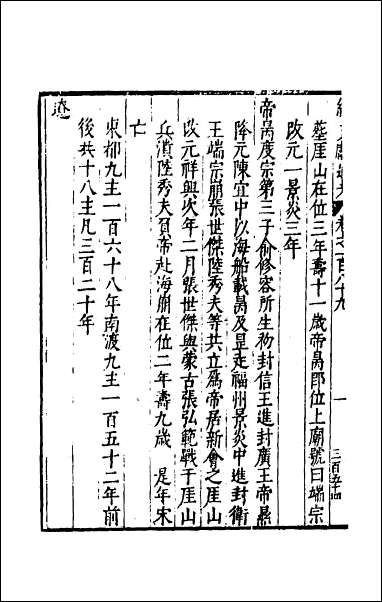 續文獻通考 卷之一百八十九
葬崖山在位三年壽十一歲帝昺即位上廟號曰端宗
改元一景炎三年
帝昺度宗第三子俞修容所生初封信王進封廣王帝㬎
降元陳宜中以海船載昺及昰走福州景炎中進封衛
王端宗崩張世傑陸秀夫等共立爲帝居新會之崖山
改元祥興次年二月張世傑與蒙古張弘範戰于崖山
兵潰陸秀夫負帝赴海崩在位二年壽九歲 是年宋
亡
東都九主一百六十八年南渡九主一百五十二年前
後共十八主凡三百二十年
遼
一
三百五十四